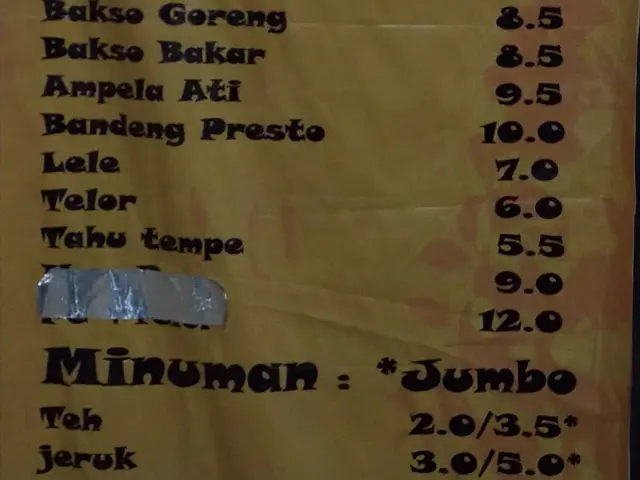 Bakso Goreng 8.5
Bakso Bakar 8.5
Ampela Ati 9.5
Bandeng Presto 10.0
Lele 7.0
Telor 6.0
Tahu tempe 5.5
9.0
12.0
Minuman : *Jumbo
Teh 2.0/3.5*
jeruk 3.0/5.0*